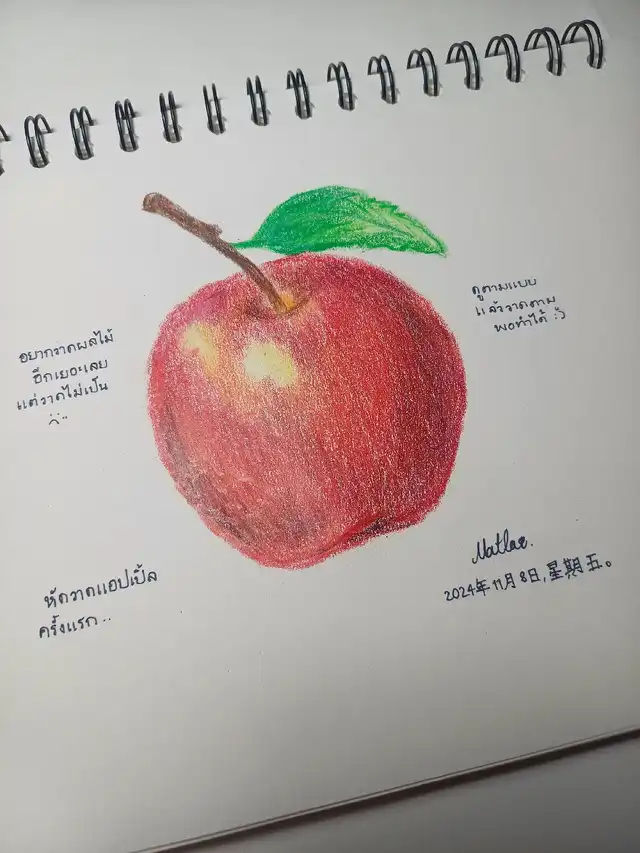 อยากวาดผลไม้
อีกเยอะเลย
แต่วาดไม่เป็น
ดูตามแบบ
แล้ววาดตาม
พอทำได้ :)
หัดวาดแอปเปิ้ล
ครั้งแรก..
2024年11月8日,星期五。